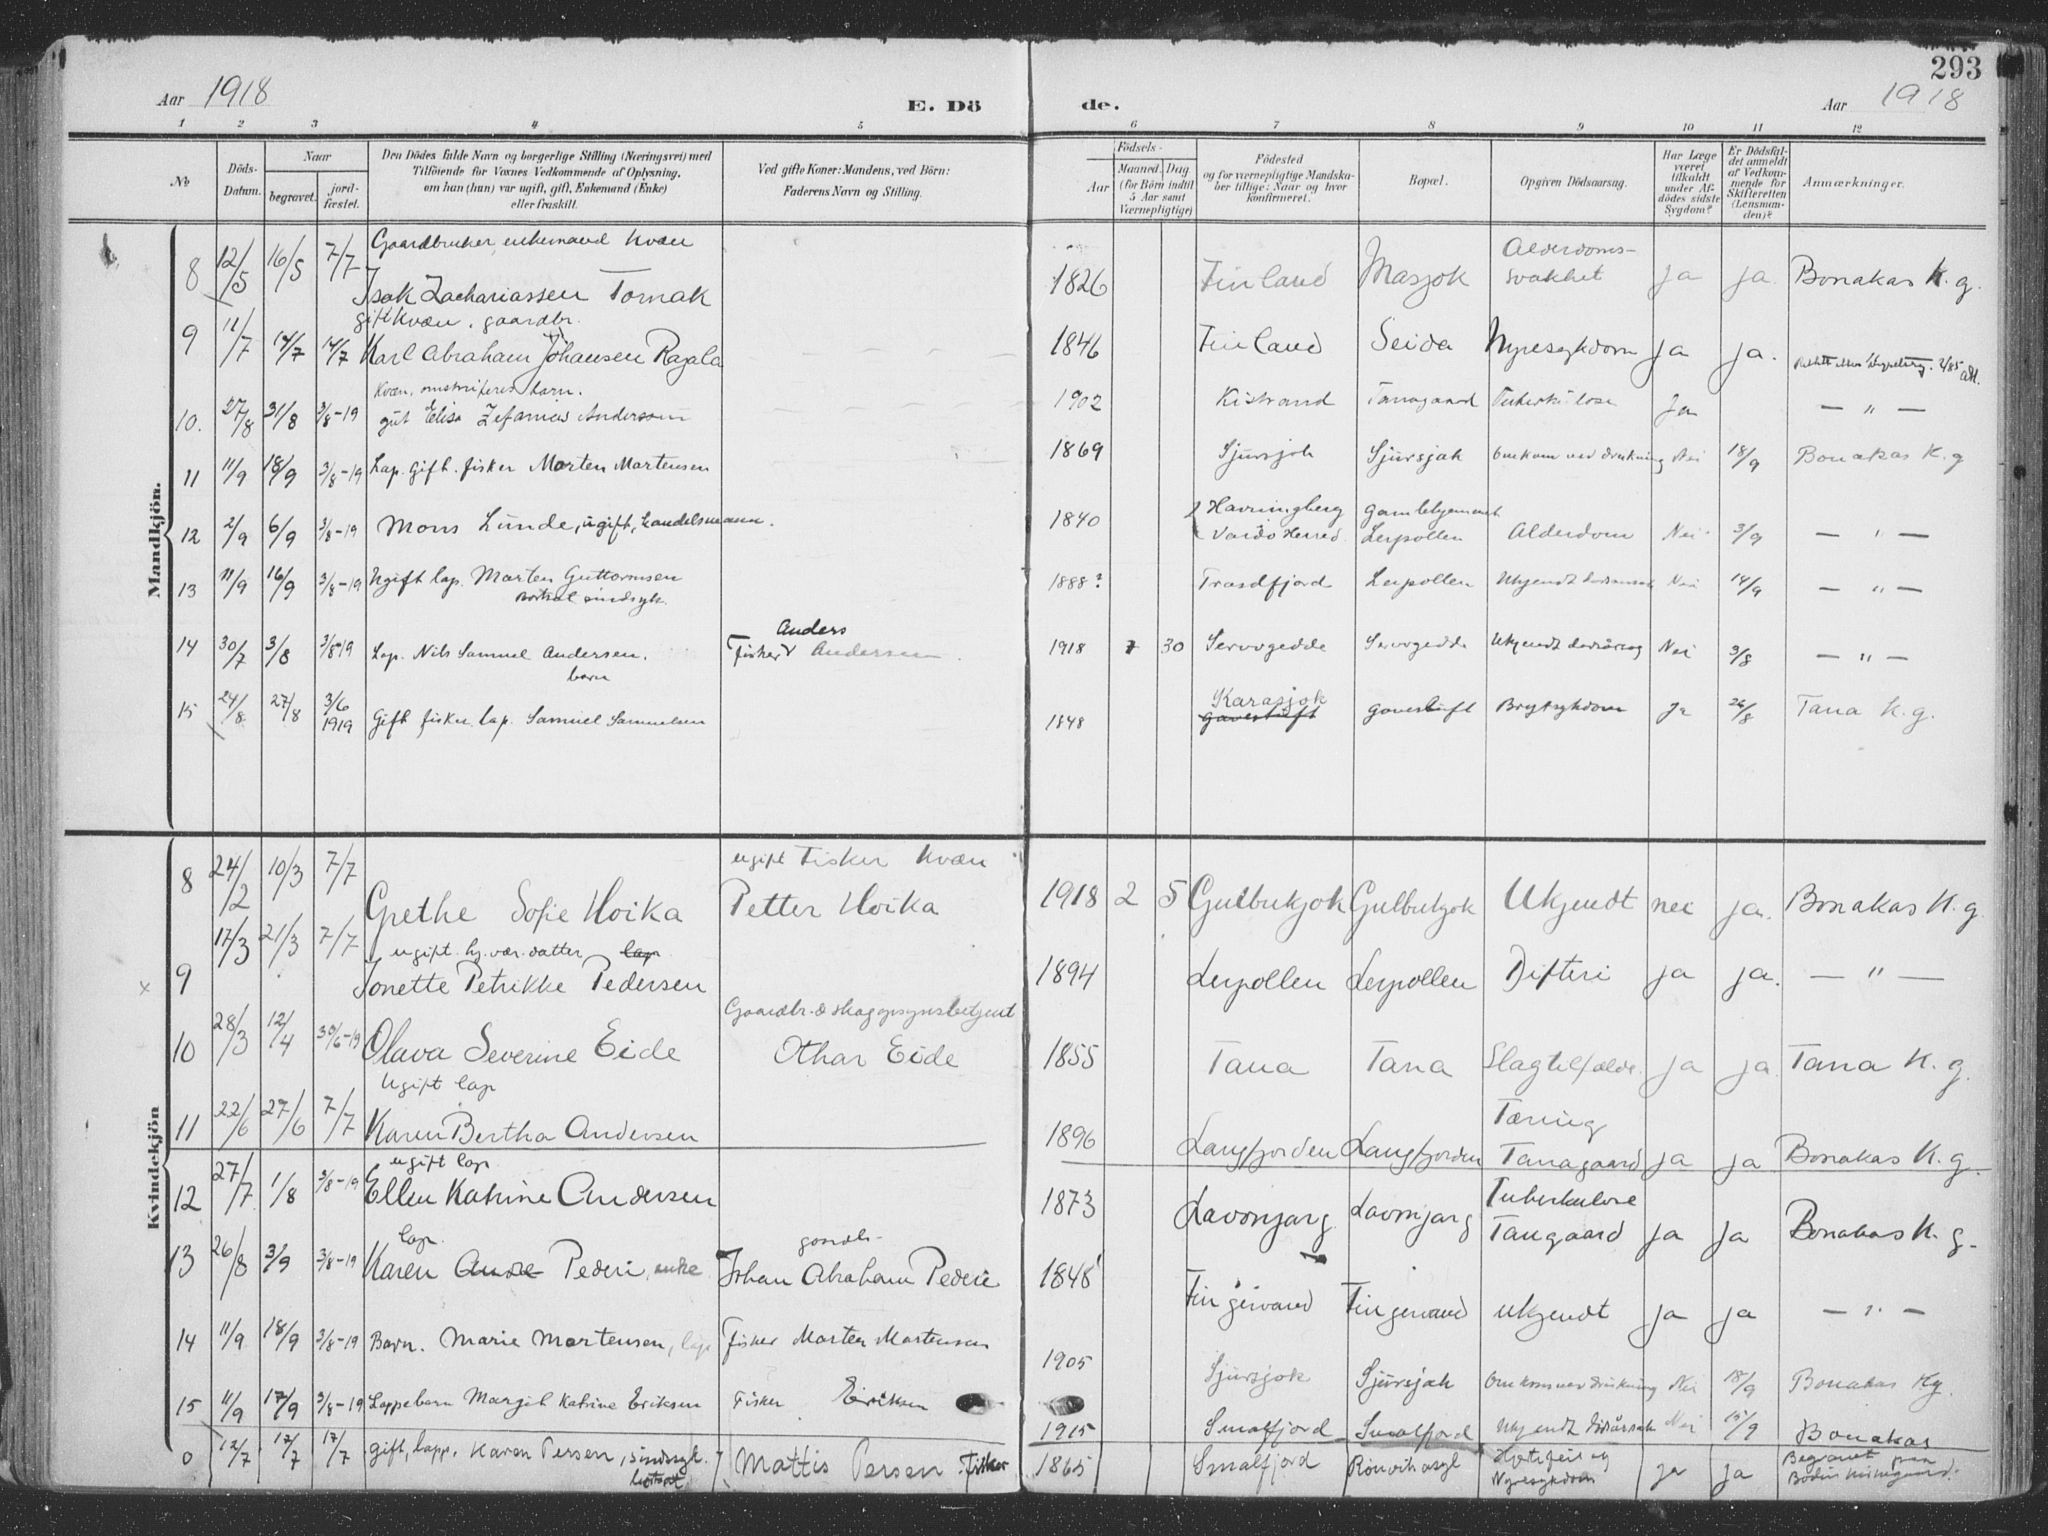 293
Aar 1918
E. Dö
de.
Aar 1918
1 2 3 4 5 6 7 8 9 10 11 12
№
Döds-
Datum.
Naar
begravet.
jord-
fæstet.
Den Dödes fulde Navn og borgerlige Stilling (Næringsvei) med
Tilföiende for Voxnes Vedkommende af Oplysning,
om han (hun) var ugift, gift, Enkemand (Enke)
eller fraskilt.
Ved gifte Koner: Mandens, ved Börn:
Faderens Navn og Stilling.
Födsels-
Aar
Maaned. Dag
(for Börn indtil
5 Aar samt
Værnepligtige)
Födested
og for værnepligtige Mandska-
ber tillige: Naar og hvor
konfirmeret.
Bopæl.
Opgiven Dödsaarsag.
Har Læge
været
tilkaldt
under Af-
dödes sidste
Sygdom?
Er Dödsfal-
det anmeldt
af Vedkom-
mende for
Skifteretten
(Lensman-
den)?
Anmærkninger.
Mandkjön.
8 12/5 16/5 7/7 Gaardbruker, enkemand Kvæn
Isak Zachariassen Tornak 1826 Finland Masjok Alderdoms-
svakhet ja ja Bonakas K. g.
gift Kvæn, gaardbr.
9 11/7 14/7 14/7 Karl Abraham Johansen Rajala 1846 Finland Seida Nyresykdom ja ja.
Kvæn, barn.
10. 27/8 31/8 3/8-19 gut Elisa Zefanias Anderssen 1902 Kistrand Tanagaard Tuberkulose Ja — " —
11 11/9 18/9 3/8-19 Lap. gift. fisker Morten Mortensen 1869 Sjursjok Sjursjok Omkom ved drukning Nei 18/9 Bonakas K. g
12 2/9 6/9 3/8-19 Mons Lunde, ugift, handelsmann. 1840 Havningberg
Vardö Herred. gamlehjemmet
Leirpollen Alderdom Nei 3/9 — " —
13 11/9 16/9 3/8-19 Ugift lap. Morten Guttormsen
sindsyk. 1888? Trasdfjord Leirpollen Ukjendt Nei 14/9 — " —
14 30/7 3/8 3/8-19 Lap. Nils Samuel Andersen.
barn Fisker Anders Andersen 1918 7 30 Servogedde Servogedde Ukjendt Nei 3/8 — " —
15 24/8 27/8 3/6
1919 Gift fisker lap. Samuel Samuelsen 1848 Karasjok
gavesluft gavesluft Brystsykdom Ja 26/8 Tana K. g.
Kvindekjön
8 24/2 10/3 7/7 Grethe Sofie Hoika ugift Fisker Kvæn
Petter Hoika 1918 2 5 Gulbukjok Gulbukjok Ukjendt nei ja. Bonakas K. g.
ugift. hj. vær. datter lap
9 17/3 21/3 7/7 Jonette Petrikke Pedersen 1894 Leirpollen Leirpollen Difteri ja ja. — " —
10 28/3 12/4 30/6-19 Olava Severine Eide Gaardbr. & skogopsynsbetjent
Othar Eide 1855 Tana Tana Slagtilfælde. ja ja Tana K. g.
Ugift lap
11 22/6 27/6 7/7 Karen Bertha Andersen 1896 Langfjorden Langfjorden Tæring
Tanagaard ja ja Bonakas K. g.
ugift lap
12 27/7 1/8 3/8-19 Ellen Katrine Andersen 1873 Lavonjarg Lavonjarg Tuberkulose
Tangaard ja ja Bonakas K. g.
lap.
13 26/8 3/9 3/8-19 Karen Pederi, enke gaardbr.
Johan Abraham Pederi 1848 Fingervand Fingervand ukjendt ja ja — " —
14 11/9 18/9 3/8-19 Barn. Marie Mortensen, lap Fisker Morten Mortensen 1905 Sjursjok Sjursjok Omkom ved drukning Nei 18/9 Bonakas Kg.
15 11/9 17/9 3/8-19 Lappebarn Marjel Katrine Eriksen Fisker Eriksen 1915 Smalfjord Smalfjord Ukjendt dödsårsak Nei 15/9 Bonakas
0 12/7 17/7 17/7 gift, lapp. Karen Persen, sindsyk. Mattis Persen. Fisker 1865 Smalfjord Rönvik asyl Hjertefeil og
Nyresykdom ja ja Begravet paa
Bodin kirkegaard.